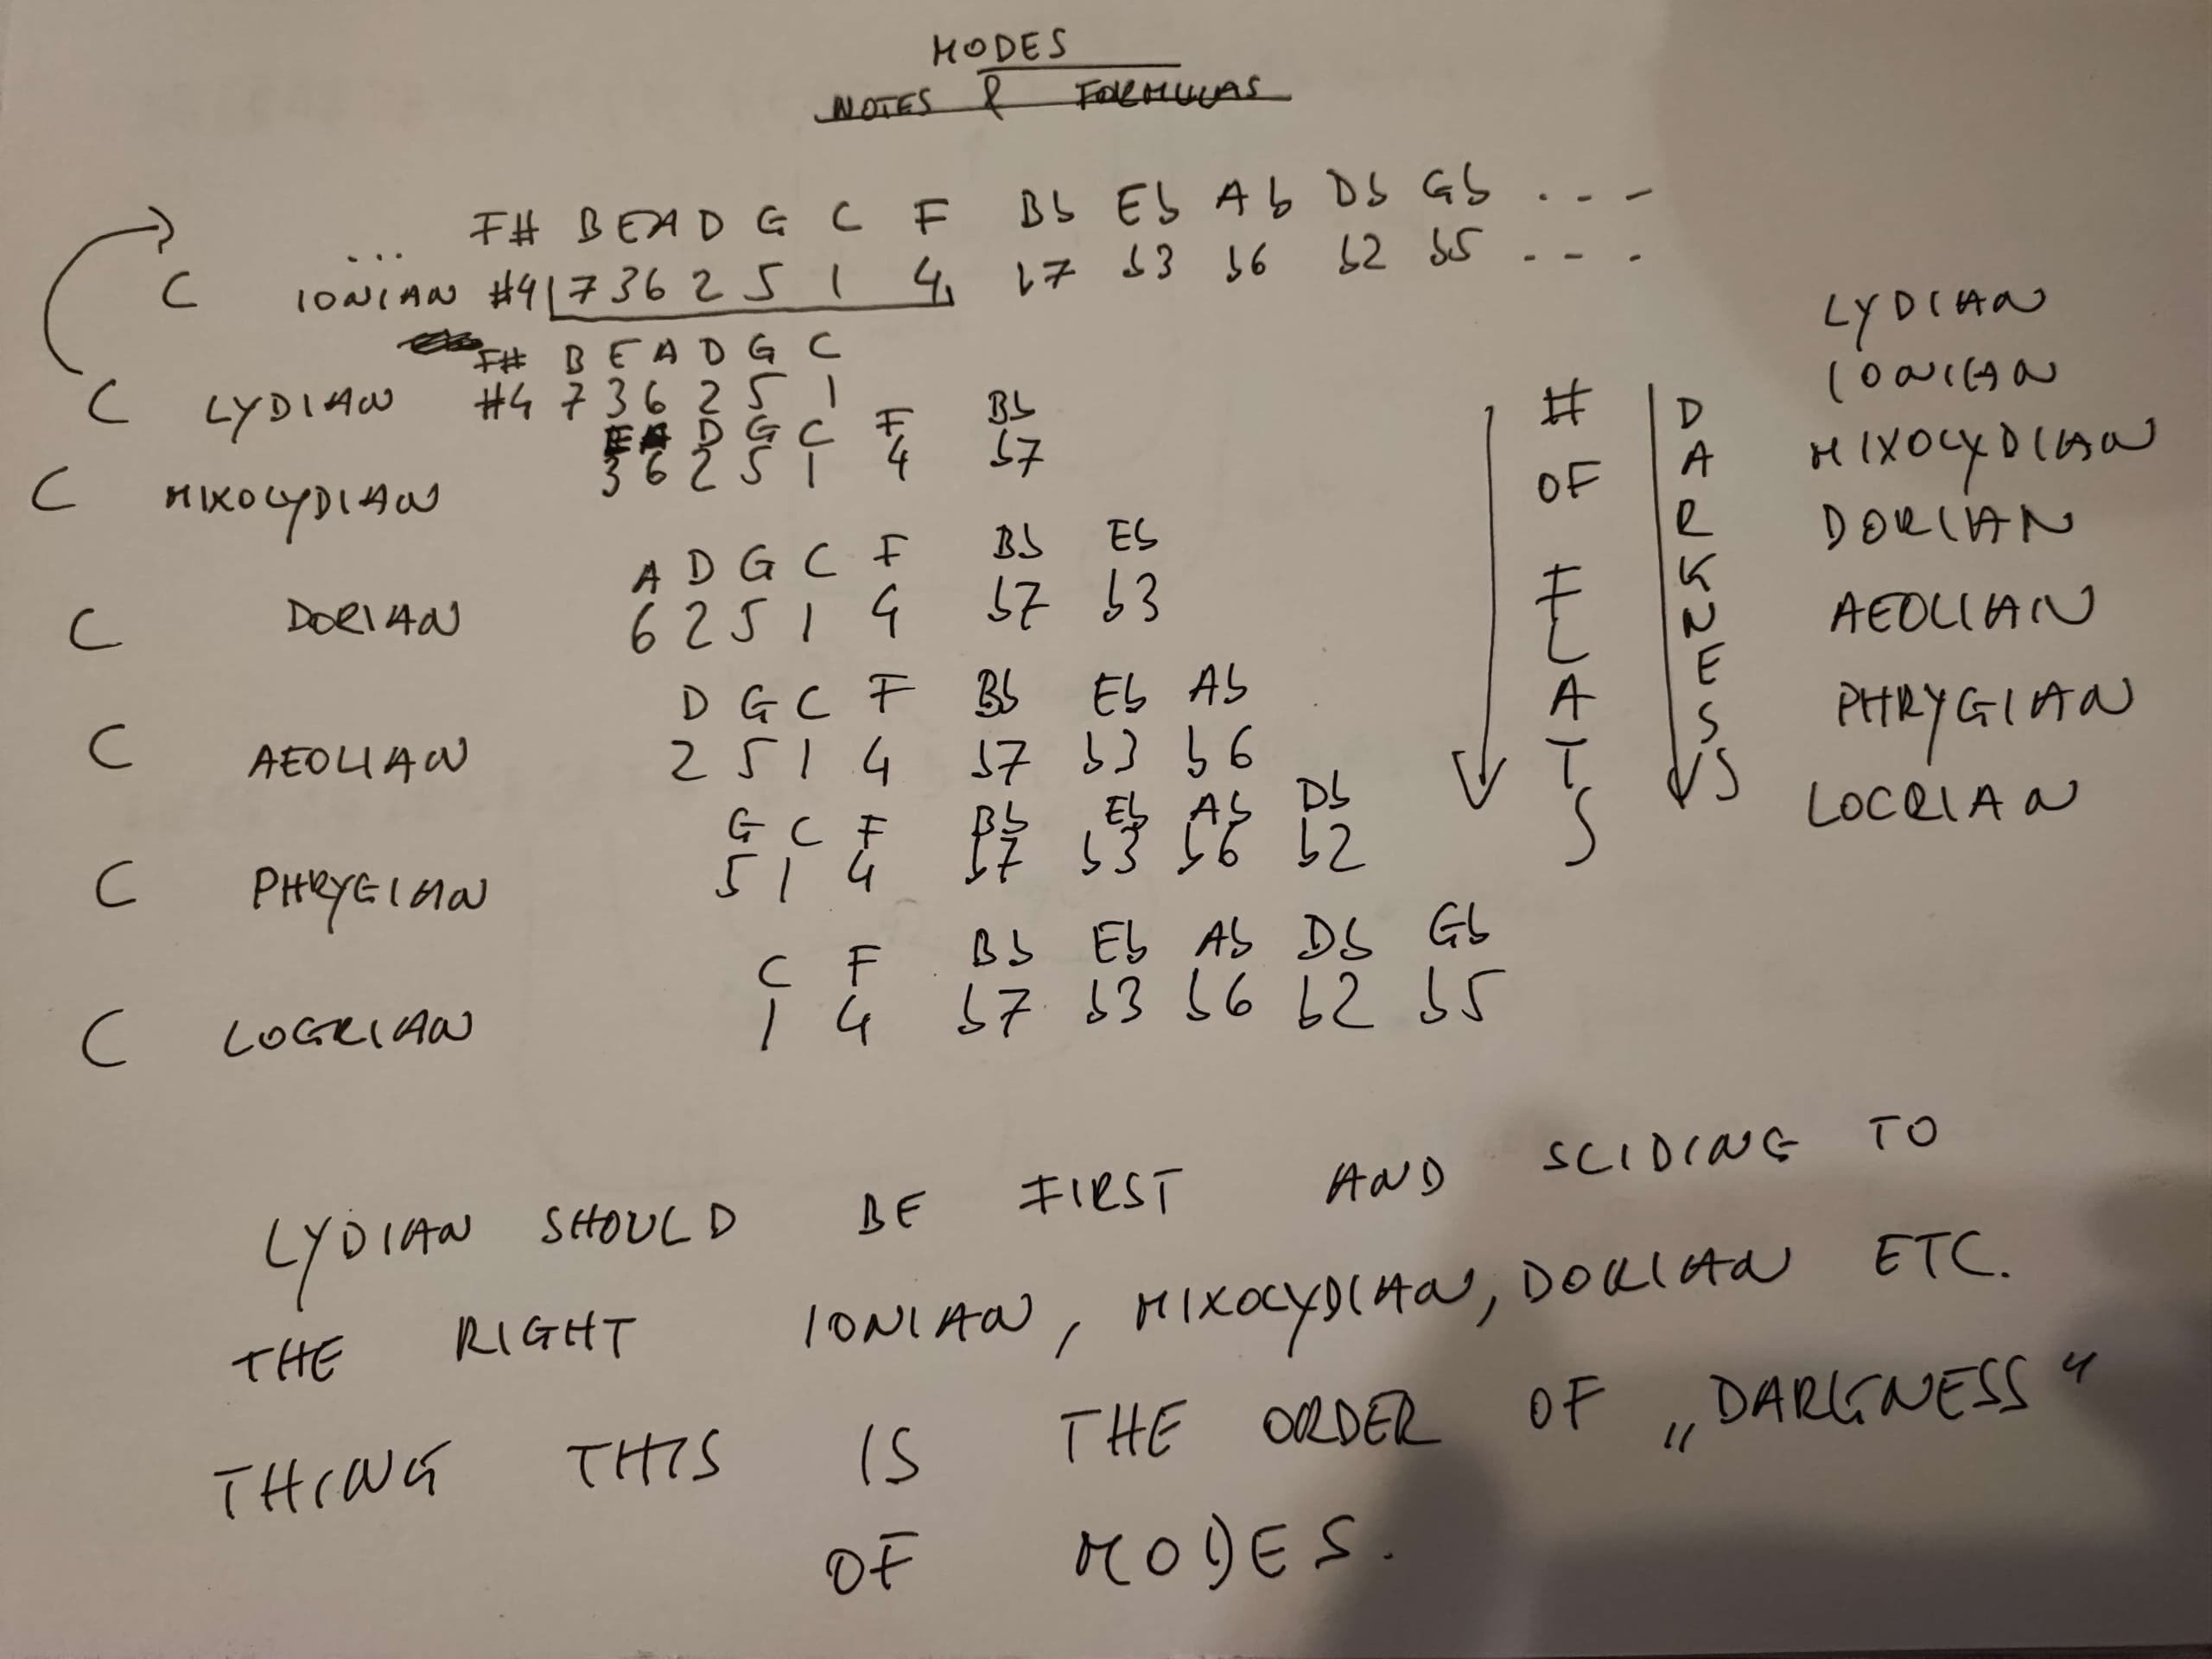 MODES
NOTES & FORMULAS
... F# B E A D G C F Bb Eb Ab Db Gb ...
C IONIAN #4 7 3 6 2 5 1 4 b7 b3 b6 b2 b5 ....
F# B E A D G C
C LYDIAN #4 7 3 6 2 5 1
E A D G C F Bb
C MIXOLYDIAN 3 6 2 5 1 4 b7
A D G C F Bb Eb
C DORIAN 6 2 5 1 4 b7 b3
D G C F Bb Eb Ab
C AEOLIAN 2 5 1 4 b7 b3 b6
G C F Bb Eb Ab Db
C PHRYGIAN 5 1 4 b7 b3 b6 b2
C F Bb Eb Ab Db Gb
C LOCRIAN 1 4 b7 b3 b6 b2 b5
# OF FLATS
DARKNESS
LYDIAN
IONIAN
MIXOLYDIAN
DORIAN
AEOLIAN
PHRYGIAN
LOCRIAN
LYDIAN SHOULD BE FIRST AND SLIDING TO
THE RIGHT IONIAN, MIXOLYDIAN, DORIAN ETC.
THING THIS IS THE ORDER OF „DARKNESS"
OF MODES.